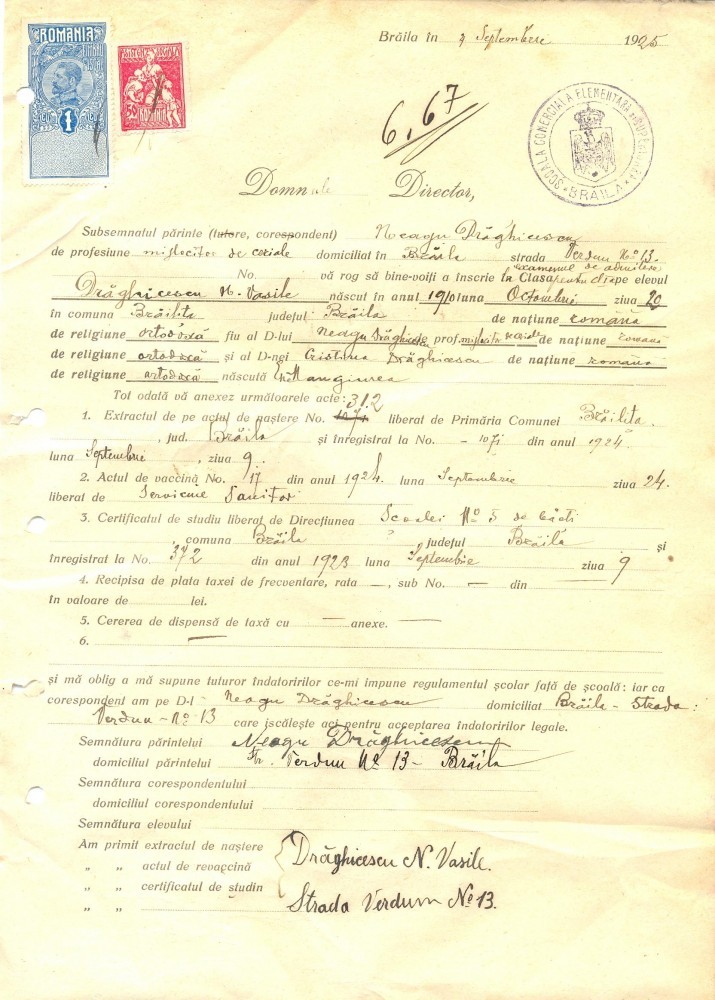 ROMANIA
1
ROMANIA
Brăila în 9 Septembrie 1925
6.67
SCOALA COMERCIALA ELEMENTARA SUPERIOARA
BRĂILA
Domnule Director,
Subsemnatul părinte (tutore, corespondent) Neagu Drăghicescu
de profesiune mijlocitor de cereale domiciliat în Brăila strada Verdun No 13.
examenul de admitere
No. vă rog să bine-voiți a înscrie în Clasa pentru pe elevul
Drăghicescu N. Vasile născut în anul 1910 luna Octombrie ziua 20
în comuna Brăilița județul Brăila de națiune română
de religiune ortodoxă fiu al D-lui Neagu Drăghicescu prof. mijlocitor cereale de națiune romană
de religiune ortodoxă și al D-nei Cristina Drăghicescu de națiune romana
de religiune ortodoxă născută Mangiurea
Tot odată vă anexez următoarele acte:
312
1. Extractul de pe actul de naștere No. 1071 liberat de Primăria Comunei Brăilița.
, jud. Brăila și înregistrat la No. - 1071 din anul 1924.
luna Septembrie , ziua 9.
2. Actul de vaccină No. 17 din anul 1924. luna Septembrie ziua 24.
liberat de Serviciul Sanitar
3. Certificatul de studiu liberat de Direcțiunea Scoalei No 5 de băeti
, comuna Brăila județul Brăila și
înregistrat la No. 372 din anul 1923 luna Septembrie ziua 9
4. Recipisa de plata taxei de frecventare, rata —, sub No. — din
în valoare de lei.
5. Cererea de dispensă de taxă cu — anexe. —
6. —
și mă oblig a mă supune tuturor îndatoririlor ce-mi impune regulamentul școlar față de școală: iar ca
corespondent am pe D-l - Neagu Drăghicescu domiciliat Brăila - Strada:
Verdun - No 13 care iscălește aci pentru acceptarea îndatoririlor legale.
Semnătura părintelui Neagu Drăghicescu
domiciliul părintelui Str. Verdun No 13 - Brăila
Semnătura corespondentului
domiciliul corespondentului
Semnătura elevului
Am primit extractul de naștere
„ „ actul de revaccină Drăghicescu N. Vasile.
„ „ certificatul de studin
„ „ Strada Verdum No 13.